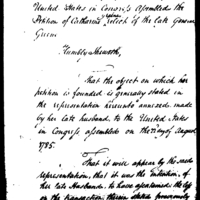 United States in Congress assembled the
Petition of Catharine Greene relict of the late General
Greene
Humbly Sheweth,
That the object on which her
petition is founded is generally stated in
the representation hereunto annexed, made
by her late husband, to the United States
in Congress assembled on the day of August
1785.
That it will appear by the said
representation, that it was the intention of
her late Husband, to have ascertained the
on the transaction therein stated previously